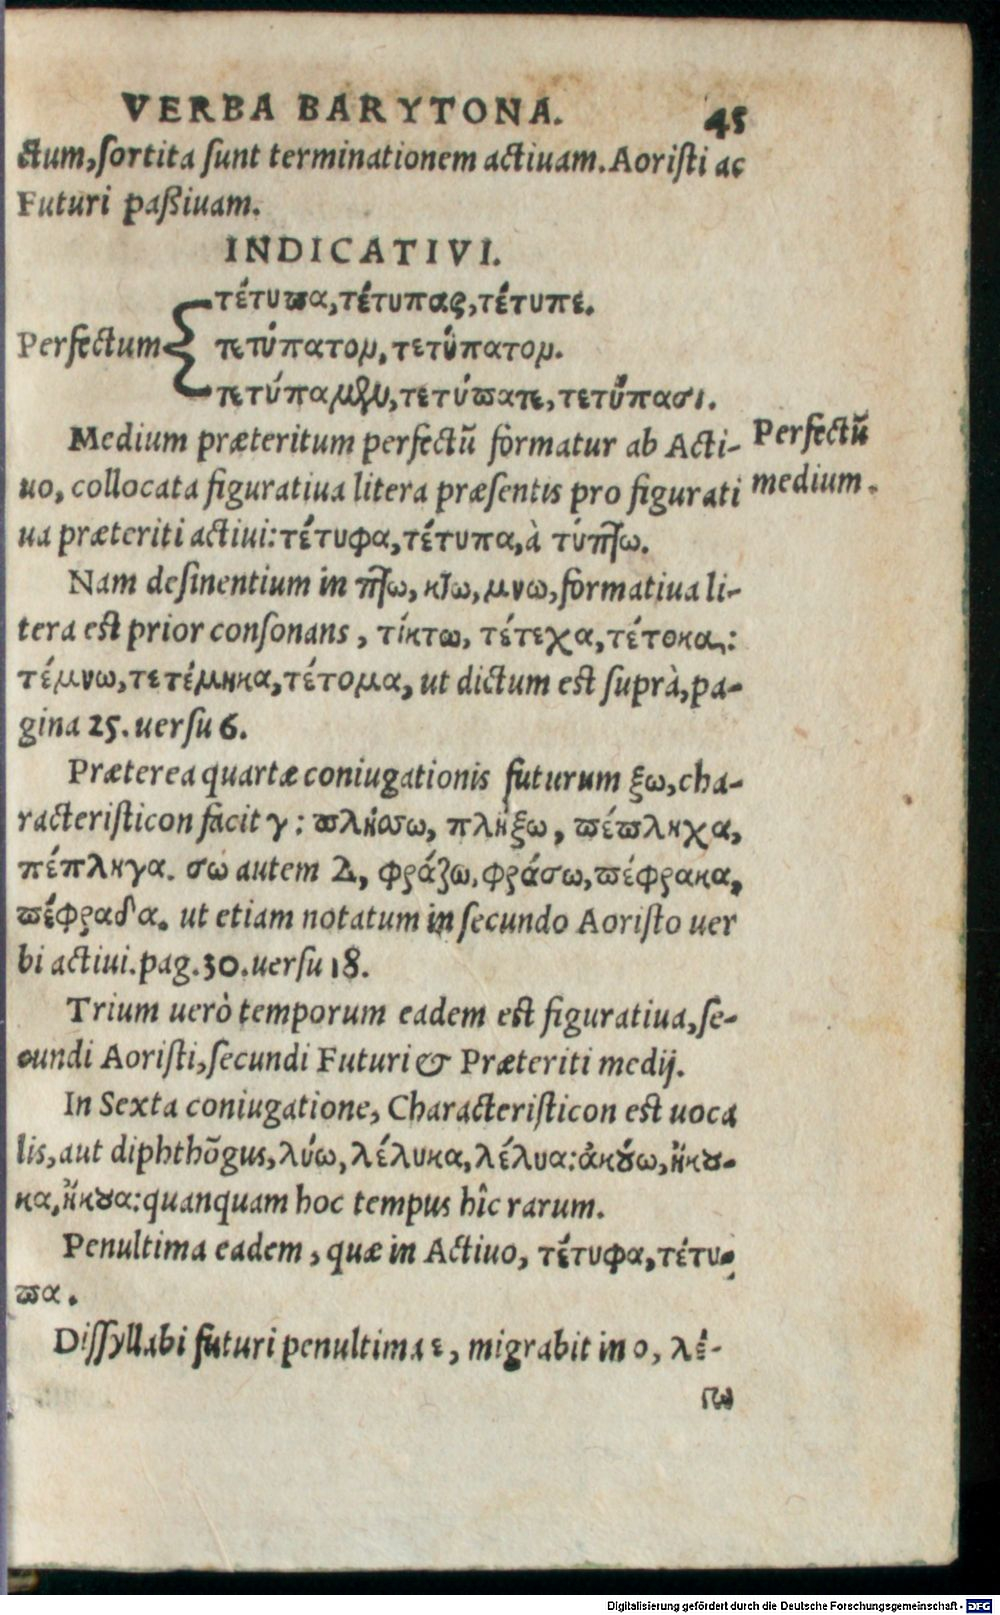 VERBA BARYTONA. 45
ctum, sortita sunt terminationem actiuam. Aoristi ac
Futuri paßiuam.
INDICATIVI.
τέτυπα, τέτυπας, τέτυπε.
Perfectum τετύπατομ, τετύπατομ.
τετύπαμεν, τετύπατε, τετύπασι.
Medium præteritum perfectũ formatur ab Acti-
uo, collocata figuratiua litera præsentis pro figurati
ua præteriti actiui: τέτυφα, τέτυπα, à τύπτω.
Perfectũ
medium.
Nam desinentium in πτω, κτω, μνω, formatiua li-
tera est prior consonans, τίκτω, τέτεχα, τέτοκα:
τέμνω, τετέμηκα, τέτομα, ut dictum est suprà, pa-
gina 25. uersu 6.
Præterea quartæ coniugationis futurum ξω, cha-
racteristicon facit γ: πλήσσω, πλήξω, πέπληχα,
πέπληγα. σω autem Δ, φράζω, φράσω, πέφρακα,
πέφραδα. ut etiam notatum in secundo Aoristo uer
bi actiui. pag. 30. uersu 18.
Trium uerò temporum eadem est figuratiua, se-
cundi Aoristi, secundi Futuri & Præteriti medij.
In Sexta coniugatione, Characteristicon est uoca
lis, aut diphthõgus, λύω, λέλυκα, λέλυα: ἀκȣ́ω, ἤκȣ-
κα, ἤκȣα: quanquam hoc tempus hîc rarum.
Penultima eadem, quæ in Actiuo, τέτυφα, τέτυ-
πα.
Dissyllabi futuri penultima ε, migrabit in ο, λέ-
πω
Digitalisierung gefördert durch die Deutsche Forschungsgemeinschaft - DFG